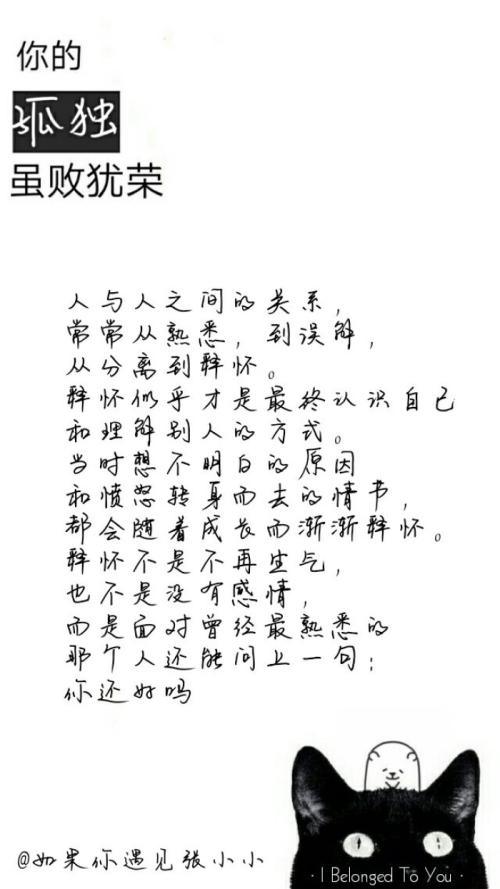 你的
孤独
虽败犹荣
人与人之间的关系，
常常从熟悉，到误解，
从分离到释怀。
释怀似乎才是最终认识自己
和理解别人的方式。
当时想不明白的原因
和愤怒转身而去的情节，
都会随着成长而渐渐释怀。
释怀不是不再生气，
也不是没有感情，
而是面对曾经最熟悉的
那个人还能问上一句：
你还好吗
@如果你遇见张小小
· I Belonged To You ·